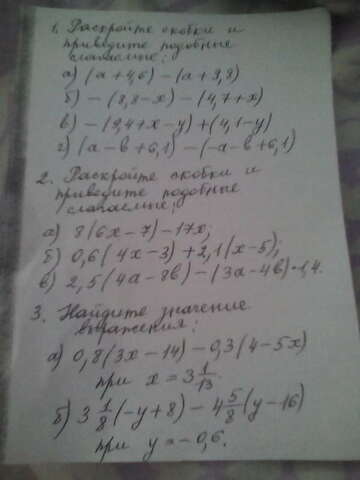 1. Раскройте скобки и
приведите подобные
слагаемые:
а) (a + 4,6) – (a + 3,8)
б) – (8,8 – x) – (4,7 + x)
в) – (9,4 + x – y) + (4,1 – y)
г) (a – b + 6,1) – (– a – b + 6,1)
2. Раскройте скобки и
приведите подобные
слагаемые;
а) 8(6x – 7) – 17x;
б) 0,6(4x – 3) + 2,1(x – 5);
в) 2,5(4a – 8b) – (3a – 4b) · 1,4.
3. Найдите значение
выражения:
а) 0,8(3x – 14) – 0,3(4 – 5x)
при x = 3 1/13.
б) 3 1/8 (–y + 8) – 4 5/8 (y – 16)
при y = – 0,6.